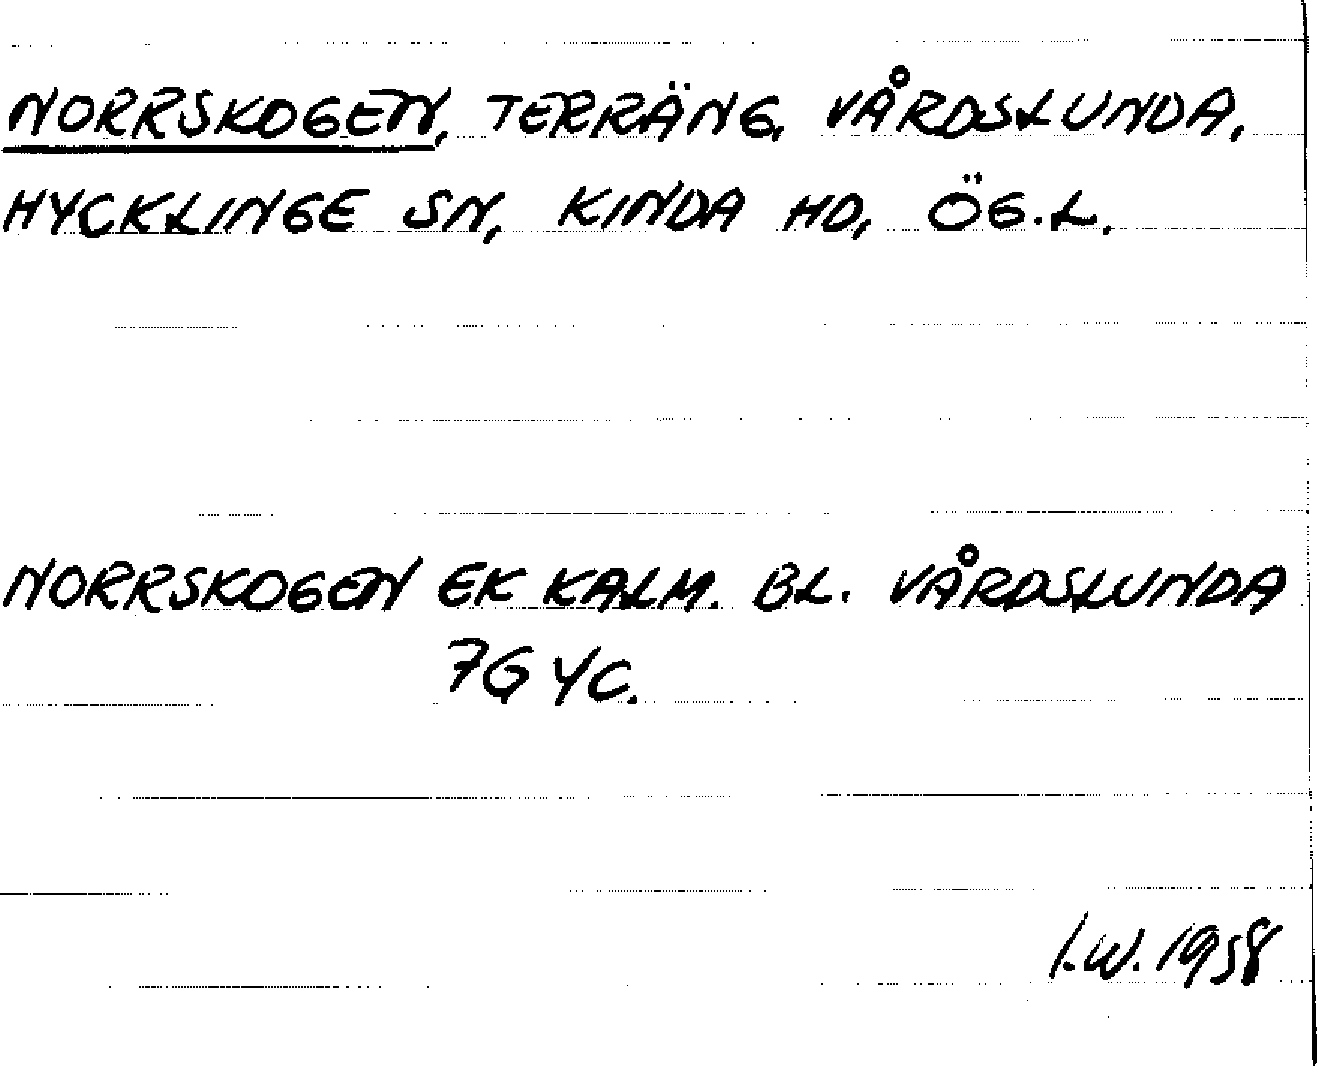 NORRSKOGEN, TERRÄNG, VÅRDSLUNDA,
HYCKLINGE SN, KINDA HD, ÖG.L.
NORRSKOGEN EK KALM. BL. VÅRDSLUNDA
7G YC.
I.W. 1958